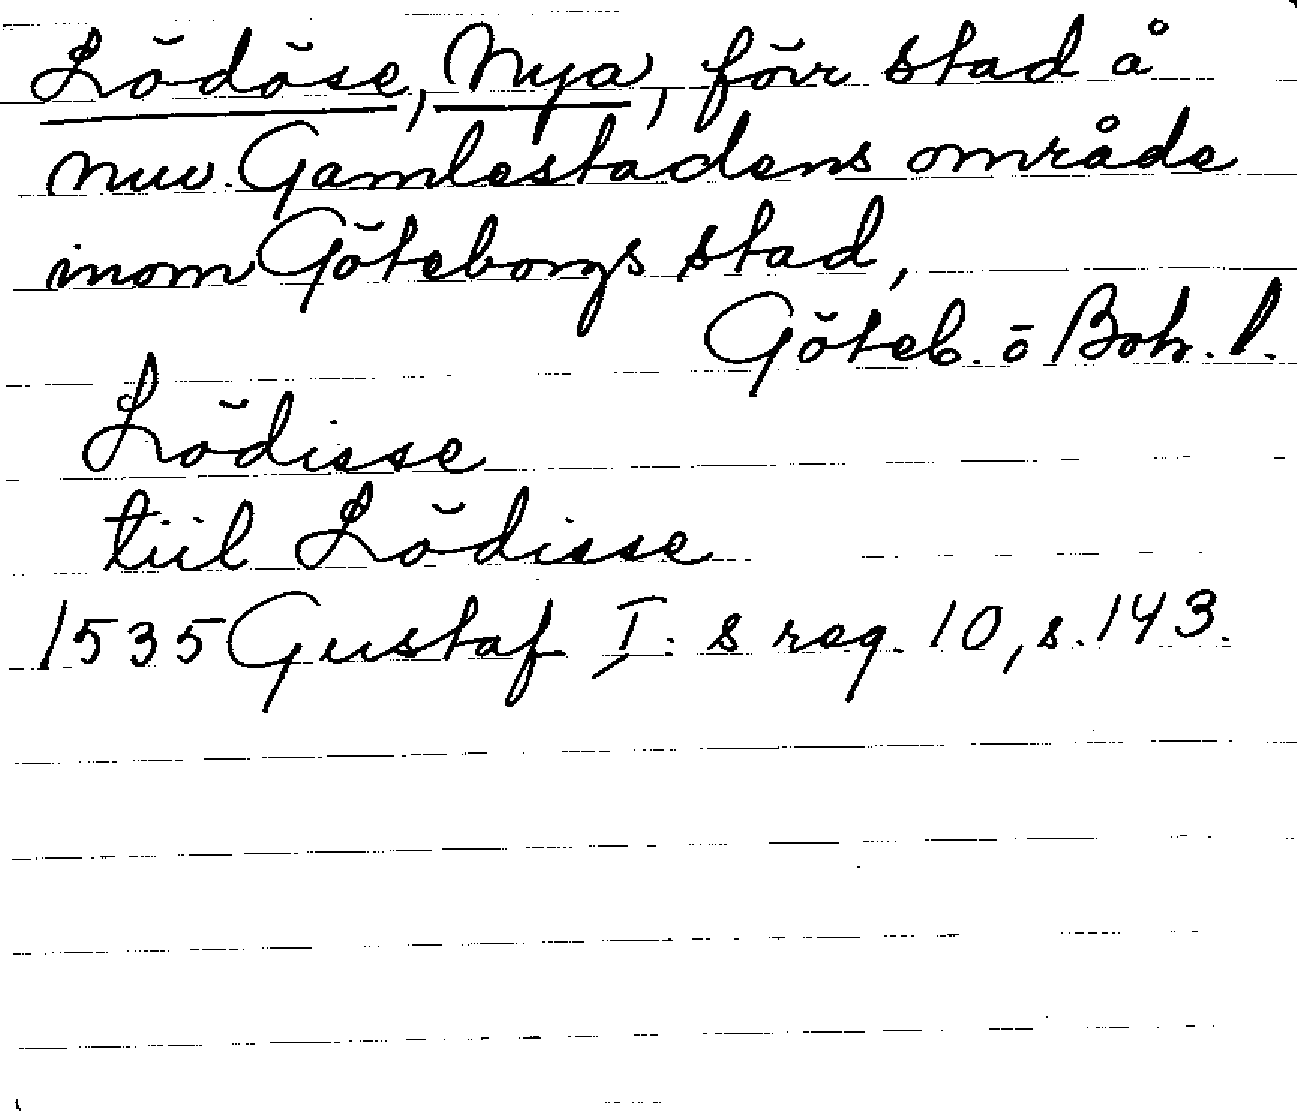 Lödöse, Nya, förr stad å
nuv. Gamlestadens område
inom Göteborgs stad,
Göteb. o Boh. l.
Lödisse
tiil Lödisse
1535 Gustaf I:s reg. 10, s. 143.